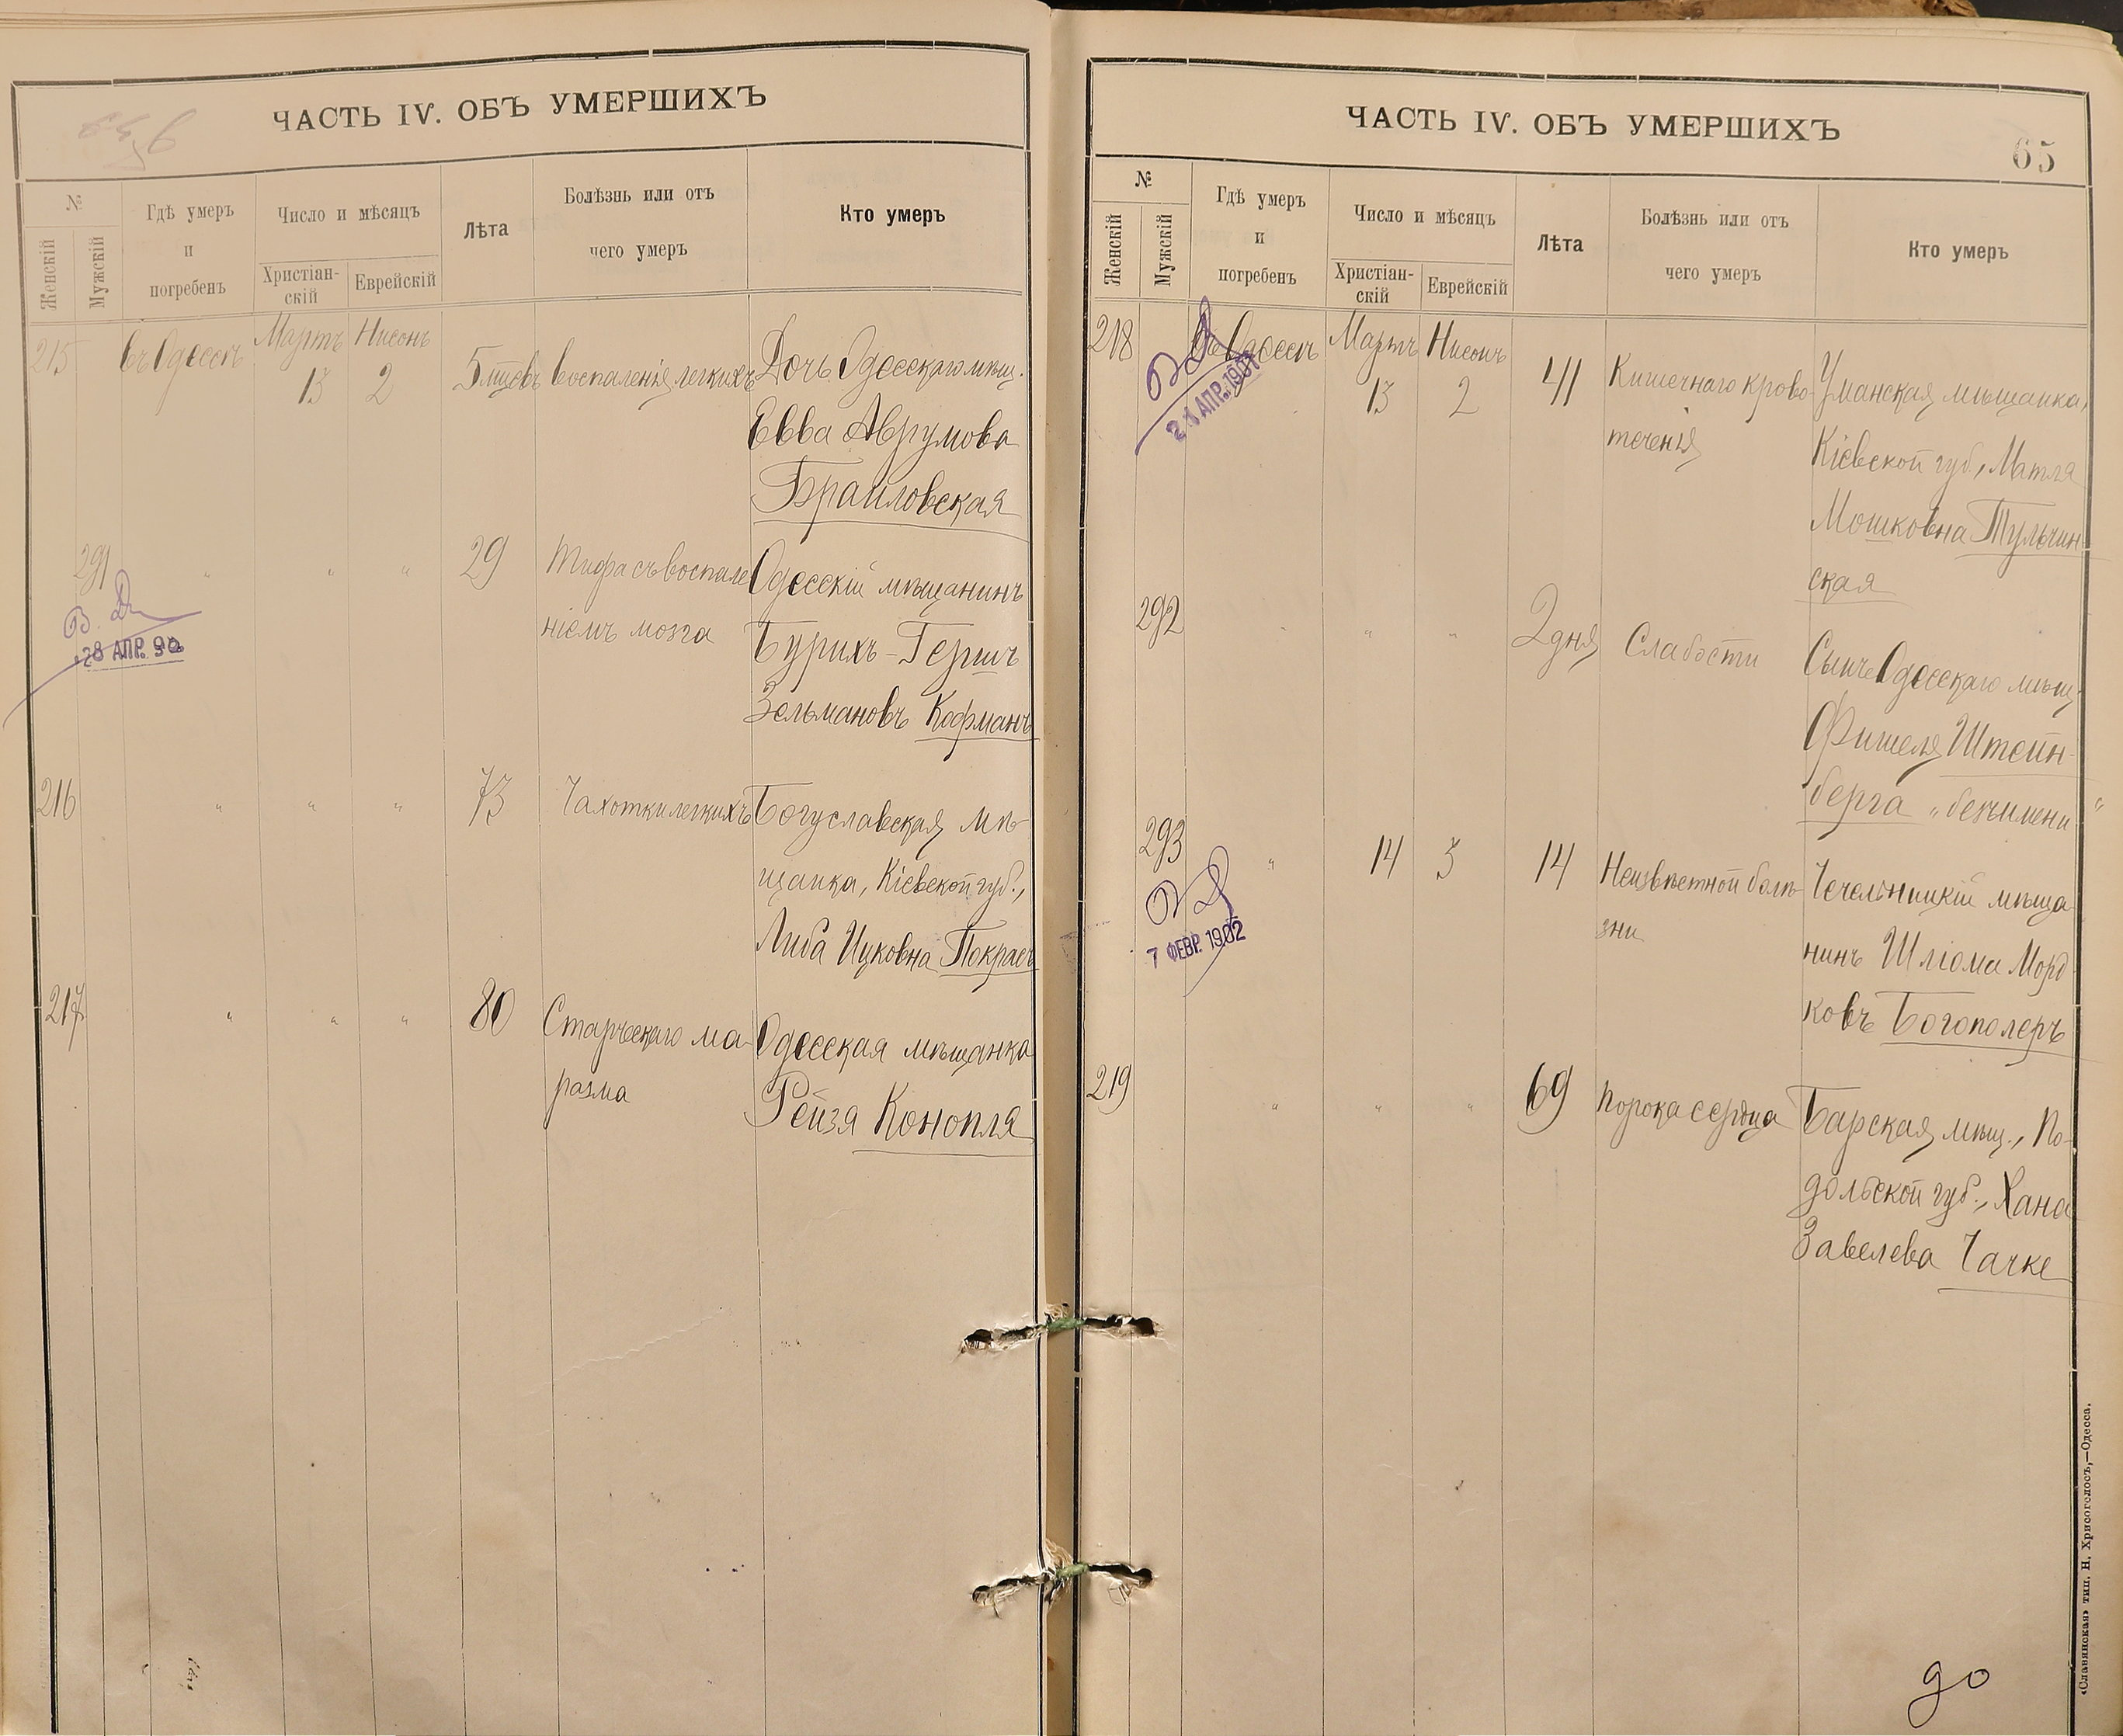 ЧАСТЬ IV. ОБЪ УМЕРШИХЪ
№
Женскій
Мужскій
Гдѣ умеръ
и
погребенъ
Число и мѣсяцъ
Христіан-
скій
Еврейскій
Лѣта
Болѣзнь или отъ
чего умеръ
Кто умеръ
215 въ Одессѣ Мартъ Нисонъ
13 2 5 мѣсѣцъ воспаленія легкихъ Дочь Одесскаго мѣщ.
Евва Аврумова
Браиловская
291 " " " 29 Тифа съ воспале Одесскій мѣщанинъ
ніемъ мозга Бурихъ-Гершъ
Зельмановъ Кофманъ
28 АПР.
216 " " " 73 Чахотки легкихъ Богуславская мѣ-
щанка, Кіевской губ.,
Либа Ицковна Покрасъ
217 " " " 80 Старческаго ма- Одесская мѣщанка
разма Рейзя Конопля
ЧАСТЬ IV. ОБЪ УМЕРШИХЪ
65
№
Женскій
Мужскій
Гдѣ умеръ
и
погребенъ
Число и мѣсяцъ
Христіан-
скій
Еврейскій
Лѣта
Болѣзнь или отъ
чего умеръ
Кто умеръ
218 въ Одессѣ Мартъ Нисонъ
13 2 41 Кишечнаго крово- Уманская мѣщанка,
теченія Кіевской губ., Матля
Мошковна Тульчин-
ская
АПР. 1901
292 " " " 2 дня Слабости Сынъ Одесскаго мѣщ.
Фишеля Штейн-
берга "безъ имени"
293 " 14 3 14 Неизвѣстной болѣ- Чечельницкій мѣща
зни нинъ Шліома Морд
ковъ Богополеръ
7 ФЕВР. 1902
219 " " " 69 Порока сердца Барская мѣщ., По-
дольской губ., Хана
Завелева Чачке
«Славянская» тип. Н. Хрисогелосъ,—Одесса.
до